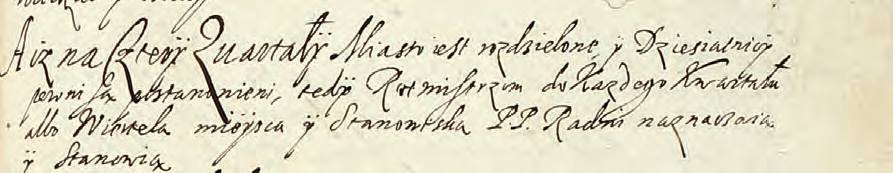 A iz na Cztery Quartały Miasto iest rozdzielone y Dziesiatnicy
pewni są postanowieni, tedy Rotmistrzom do Kazdego Kwartału
albo Wiertela mieysca y Stanowiska P.P. Radni naznaczaią
y Stanowią